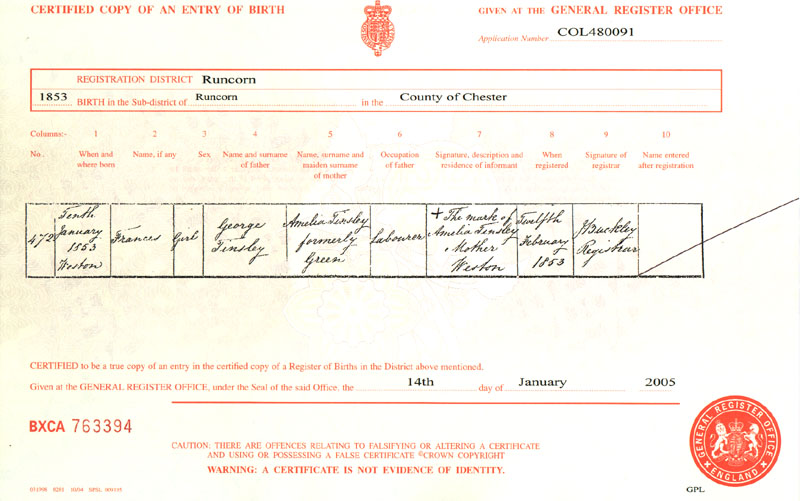 CERTIFIED COPY OF AN ENTRY OF BIRTH
GIVEN AT THE GENERAL REGISTER OFFICE
Application Number COL480091
REGISTRATION DISTRICT Runcorn
1853 BIRTH in the Sub-district of Runcorn in the County of Chester
Columns:- 1 2 3 4 5 6 7 8 9 10
No. When and where born Name, if any Sex Name and surname of father Name, surname and maiden surname of mother Occupation of father Signature, description and residence of informant When registered Signature of registrar Name entered after registration
472 Tenth January 1853 Weston Frances Girl George Tinsley Amelia Tinsley formerly Green Labourer + The mark of Amelia Tinsley Mother Weston Twelfth February 1853 J Buckley Registrar
CERTIFIED to be a true copy of an entry in the certified copy of a Register of Births in the District above mentioned.
Given at the GENERAL REGISTER OFFICE, under the Seal of the said Office, the 14th day of January 2005
BXCA 763394
CAUTION: THERE ARE OFFENCES RELATING TO FALSIFYING OR ALTERING A CERTIFICATE
AND USING OR POSSESSING A FALSE CERTIFICATE ©CROWN COPYRIGHT
WARNING: A CERTIFICATE IS NOT EVIDENCE OF IDENTITY.
GENERAL REGISTER OFFICE
ENGLAND
GPL